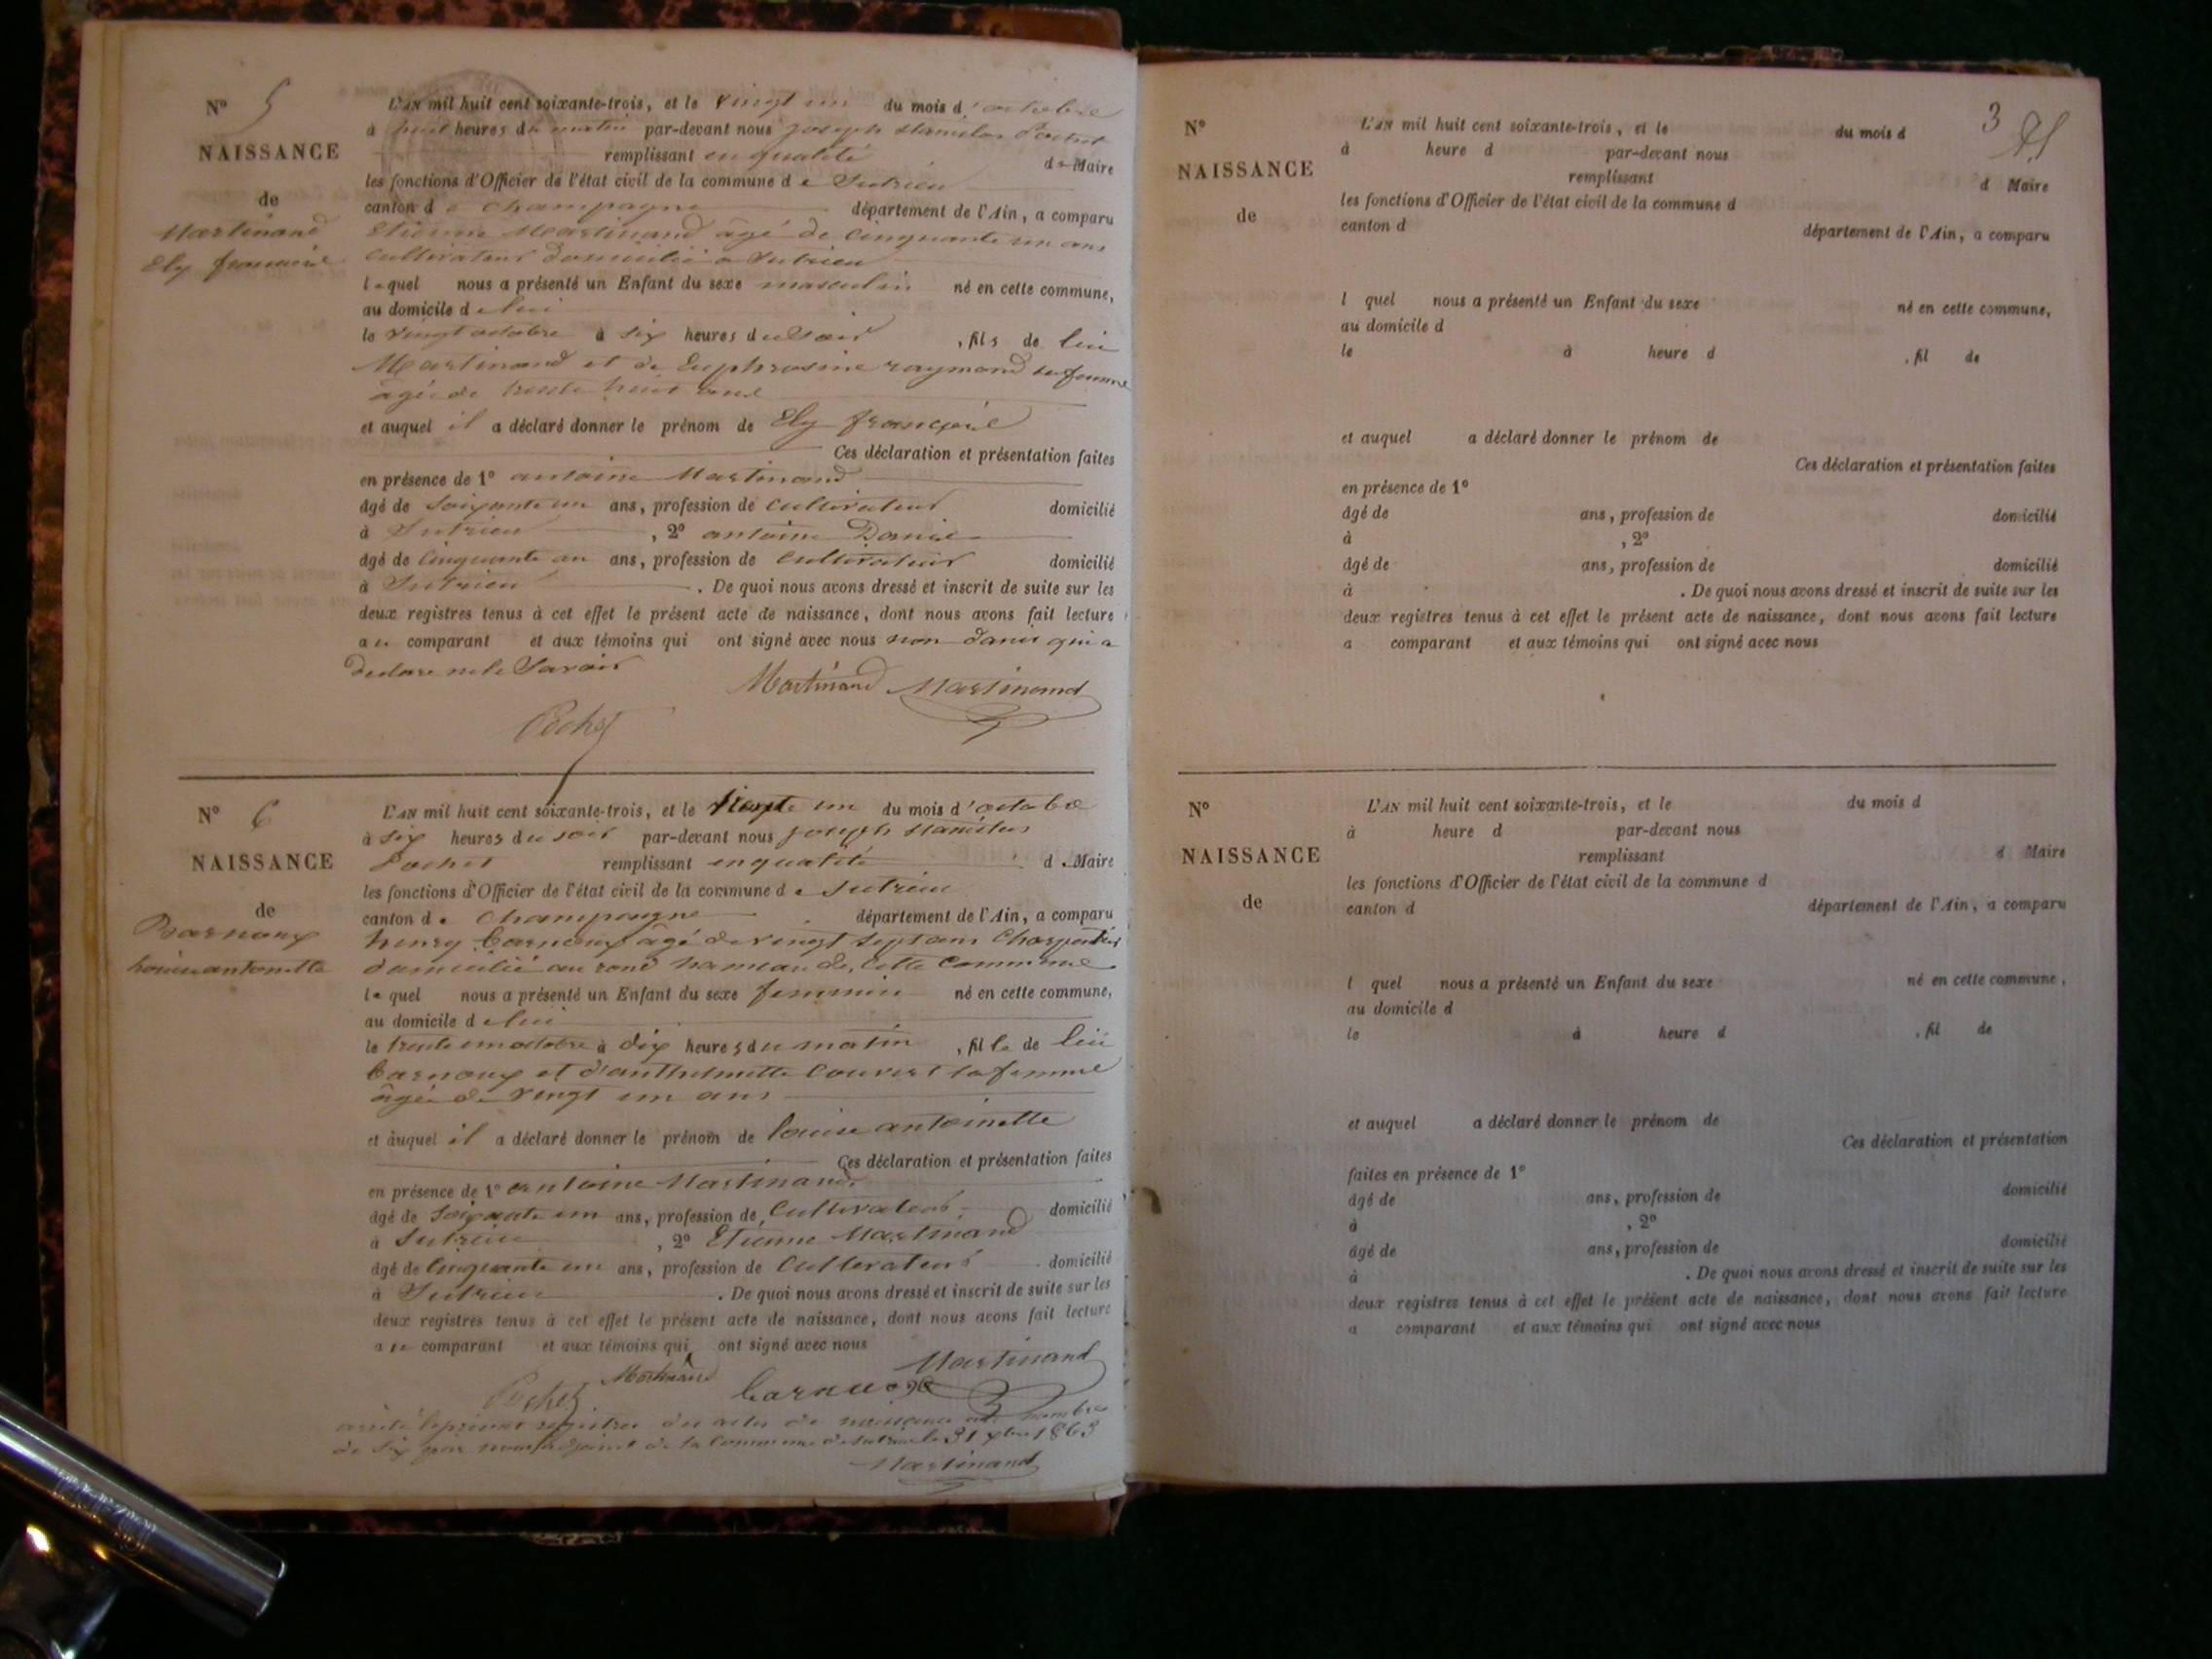 N° 5
NAISSANCE
de
Martinand
Ely françois
L'AN mil huit cent soixante-trois, et le vingt un du mois d'octobre
à huit heures du matin par-devant nous joseph stanislas Pochet
remplissant en qualité de Maire
les fonctions d'Officier de l'état civil de la commune de Sutrieu
canton de champagne département de l'Ain, a comparu
Etienne Martinand âgé de cinquante un ans
cultivateur domicilié à Sutrieu
lequel nous a présenté un Enfant du sexe masculin né en cette commune,
au domicile de lui
le vingt octobre à six heures du soir, fils de lui
Martinand et de Euphrosine raymond sa femme
âgée de trente huit ans
et auquel il a déclaré donner le prénom de Ely françois
Ces déclaration et présentation faites
en présence de 1° antoine Martinand
âgé de soixante un ans, profession de cultivateur domicilié
à Sutrieu, 2° antoine
âgé de cinquante un ans, profession de cultivateur domicilié
à Sutrieu. De quoi nous avons dressé et inscrit de suite sur les
deux registres tenus à cet effet le présent acte de naissance, dont nous avons fait lecture
au comparant et aux témoins qui ont signé avec nous non qui a
declare ne le Savoir
Martinand Martinand
Pochet
N° 6
NAISSANCE
de
Barnoux
louise antoinette
L'AN mil huit cent soixante-trois, et le trente un du mois d'octobre
à six heures du soir par-devant nous joseph stanislas
Pochet remplissant en qualité de Maire
les fonctions d'Officier de l'état civil de la commune de Sutrieu
canton de champagne département de l'Ain, a comparu
henry âgé de vingt sept ans Charpentier
domicilié au hameau de cette commune
lequel nous a présenté un Enfant du sexe feminin né en cette commune,
au domicile de lui
le trente un octobre à dix heures du matin, fille de lui
et d'anthelmette Couvert sa femme
âgée de vingt un ans
et auquel il a déclaré donner le prénom de louise antoinette
Ces déclaration et présentation faites
en présence de 1° antoine Martinand
âgé de soixante un ans, profession de Cultivateur domicilié
à Sutrieu, 2° Etienne Martinand
âgé de Cinquante un ans, profession de Cultivateur domicilié
à Sutrieu. De quoi nous avons dressé et inscrit de suite sur les
deux registres tenus à cet effet le présent acte de naissance, dont nous avons fait lecture
au comparant et aux témoins qui ont signé avec nous
Martinand
Pochet Martinand
arrêté le présent registre des actes de naissance au nombre
de six par nous adjoint de la commune de Sutrieu le 31 xbre 1863
Martinand
3
N°
NAISSANCE
de
L'AN mil huit cent soixante-trois, et le du mois d
à heure d par-devant nous
remplissant d Maire
les fonctions d'Officier de l'état civil de la commune d
canton d département de l'Ain, a comparu
l quel nous a présenté un Enfant du sexe né en cette commune,
au domicile d
le à heure d , fil de
et auquel a déclaré donner le prénom de
Ces déclaration et présentation faites
en présence de 1°
âgé de ans, profession de domicilié
à , 2°
âgé de ans, profession de domicilié
à . De quoi nous avons dressé et inscrit de suite sur les
deux registres tenus à cet effet le présent acte de naissance, dont nous avons fait lecture
a comparant et aux témoins qui ont signé avec nous
N°
NAISSANCE
de
L'AN mil huit cent soixante-trois, et le du mois d
à heure d par-devant nous
remplissant d Maire
les fonctions d'Officier de l'état civil de la commune d
canton d département de l'Ain, a comparu
l quel nous a présenté un Enfant du sexe né en cette commune,
au domicile d
le à heure d , fil de
et auquel a déclaré donner le prénom de
Ces déclaration et présentation
faites en présence de 1°
âgé de ans, profession de domicilié
à , 2°
âgé de ans, profession de domicilié
à . De quoi nous avons dressé et inscrit de suite sur les
deux registres tenus à cet effet le présent acte de naissance, dont nous avons fait lecture
a comparant et aux témoins qui ont signé avec nous